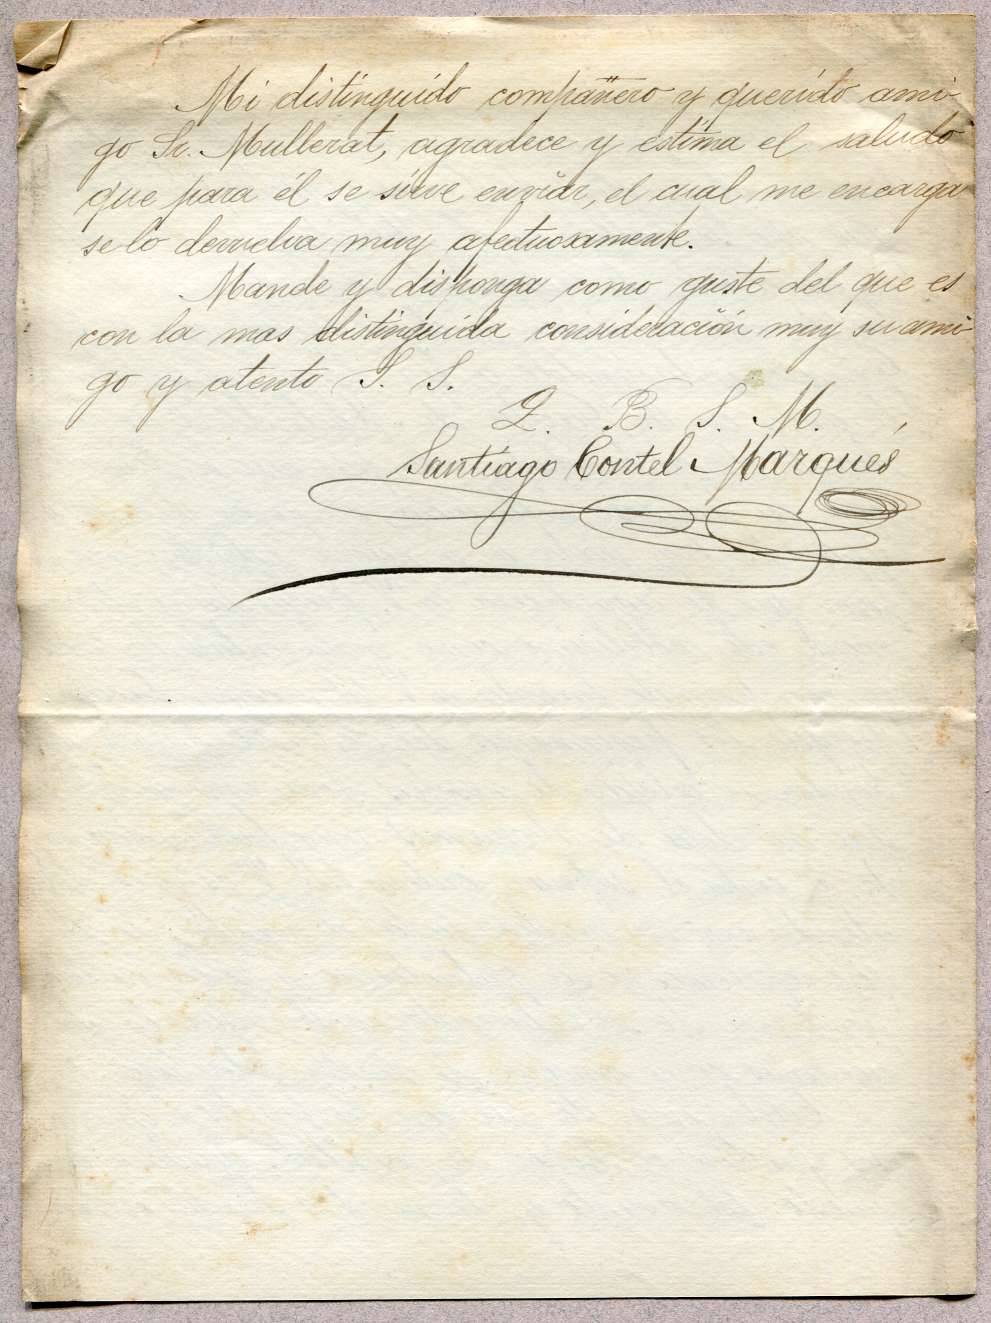 Mi distinguido compañero y querido ami-
go Sr. Mullerat, agradece y estima el saludo
que para él se sirve enviar, el cual me encarga
se lo devuelva muy afectuosamente.
Mande y disponga como guste del que es
con la mas distinguida consideración muy su ami-
go y atento S. S.
Q. B. S. M.
Santiago Contel Marqués